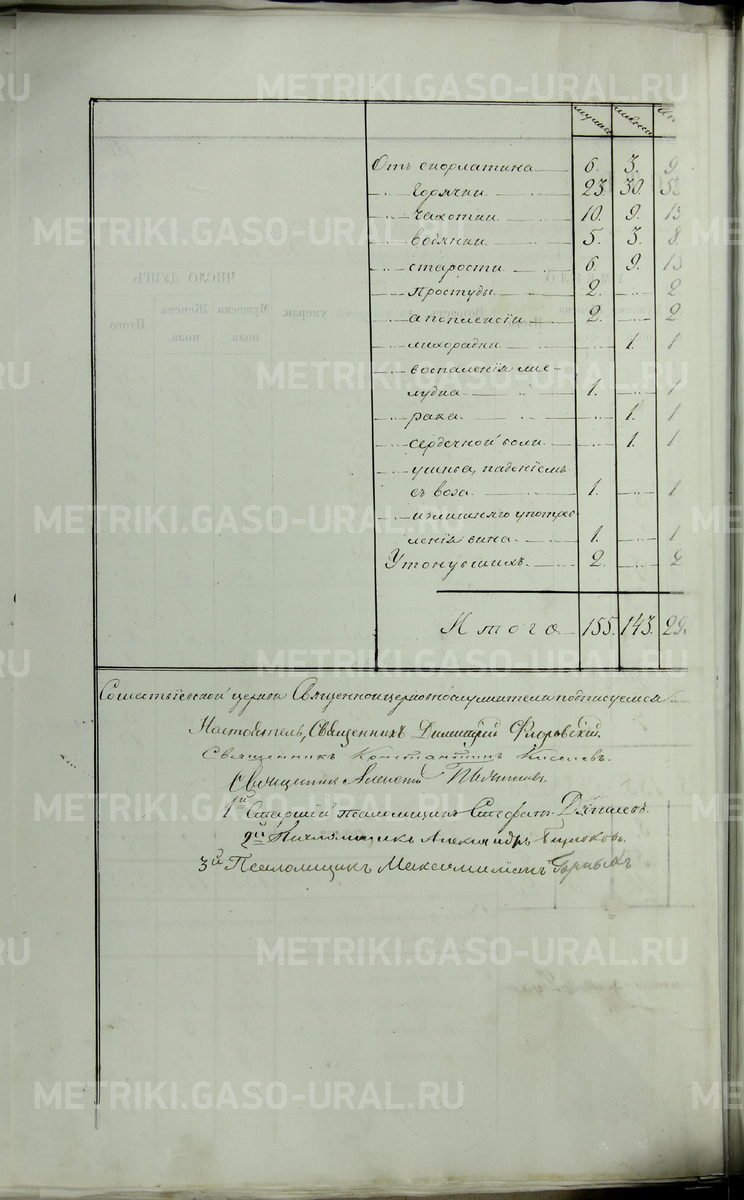 мужска женска Ит
Отъ скорлатина 6. 3. 9.
" горячки 23. 30. 53
" чахотки 10. 9. 19
" водянки 5. 3. 8.
" старости 6. 9. 15
" простуды 2. " 2
" апоплексіи 2. " 2
" лихорадки " 1. 1
" воспаленія же-
лудка 1. " 1
" рака " 1. 1
" сердечной боли " 1. 1
" ушиба, паденіемъ
съ воза 1. " 1
" излишняго употреб
ленія вина 1. " 1
Утонувшихъ. 2. 2
Итого 155. 143. 29
церкви Священноцерковнослужители подписуемся
Настоятель, Священникъ Димитрій Флоровскій.
Священникъ Константинъ Киселевъ.
Священникъ Алексѣй
1й Старшій псаломщикъ Стефанъ
2й Псаломщикъ Александръ
3й Псаломщикъ Максимиліанъ Горныхъ
ЧИСЛО ДУШЪ
Мужеска пола.
Женска пола.
Итого.
METRIKI.GASO-URAL.RU